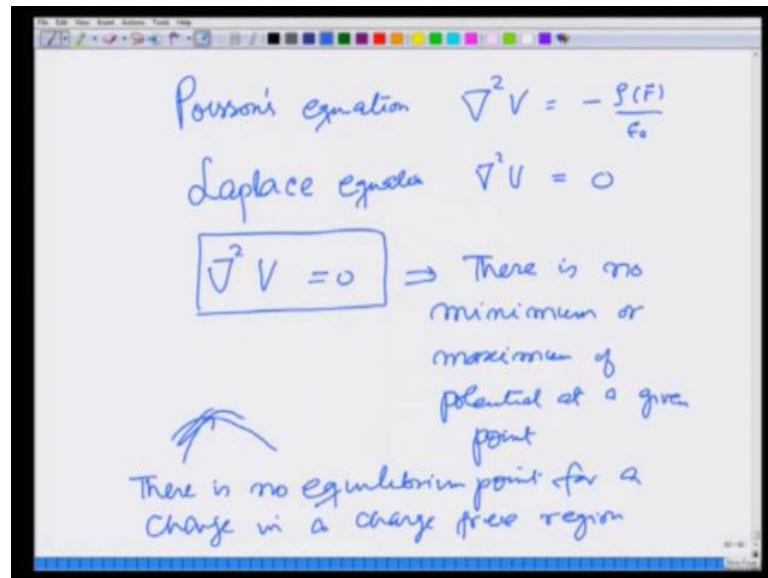 File Edit View Insert Actions Tools Help
Poisson's equation ∇²V = - ρ(r̄)/ε₀
Laplace equation ∇²V = 0
∇²V = 0 ⇒ There is no
minimum or
maximum of
potential at a given
point
There is no equilibrium point for a
charge in a charge free region